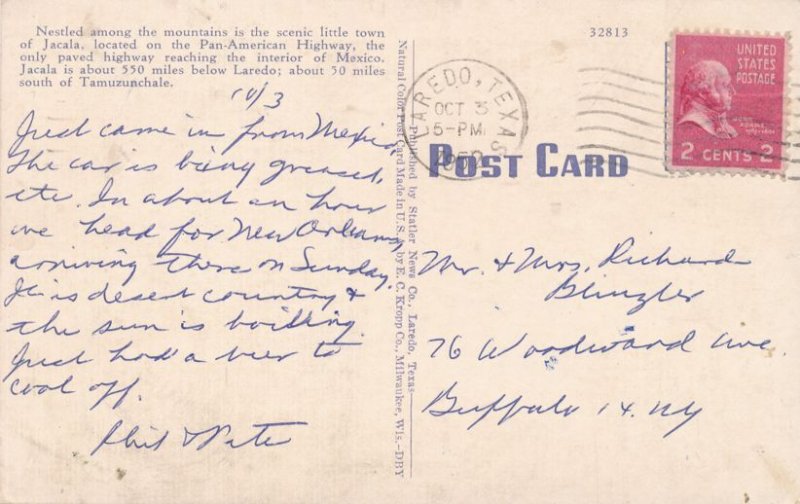 Nestled among the mountains is the scenic little town
of Jacala, located on the Pan-American Highway, the
only paved highway reaching the interior of Mexico.
Jacala is about 550 miles below Laredo; about 50 miles
south of Tamuzunchale.
10/3
Just came in from Mexico.
The car is being greased,
etc. In about an hour
we head for New Orleans,
arriving there on Sunday.
It is desert country &
the sun is boiling.
Just had a beer to
cool off.
Phil & Pete
Published by Statler News Co., Laredo, Texas
Natural Color Post Card Made in U. S. A. by E. C. Kropp Co., Milwaukee, Wis.—DBY
32813
LAREDO, TEXAS
OCT 3
5-PM
UNITED
STATES
POSTAGE
2 CENTS 2
POST CARD
Mr. & Mrs. Richard
Blingler
76 Woodward Ave.
Buffalo 14, NY